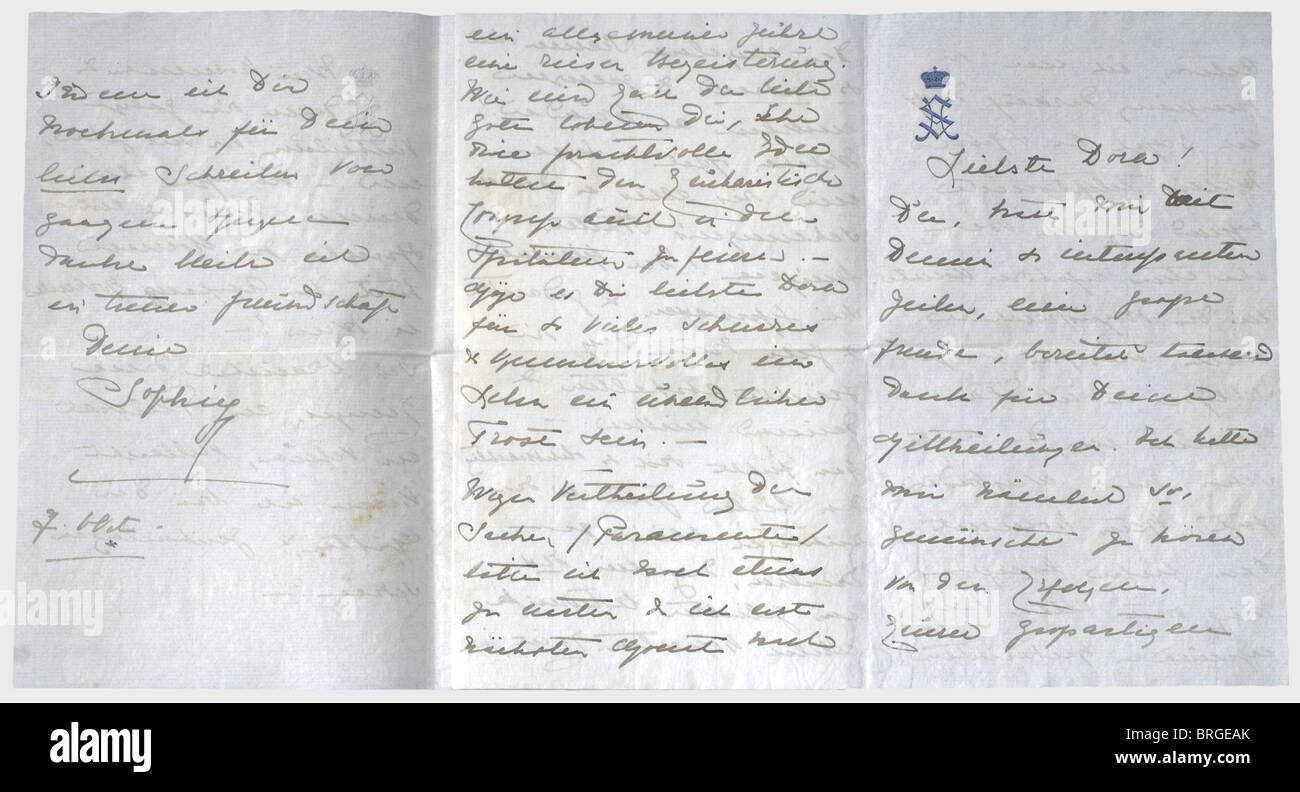 Liebste Dora!
Du, hast mir mit
Deinen so interessanten
Zeilen, eine große
Freude, bereitet tausend
Dank für Deine
Mittheilungen. Ich hatte
mir nämlich so,
gewünscht zu hören
von den Erfolgen,
Eures großartigen
ein allgemeiner
eine riesen Begeisterung.
Wie wird der liebe
Gott lohnen Dir,
die prachtvolle Idee
hatten den Eucharistische
Congreß auch in den
Spitälern zu feiern. –
Möge es Dir liebste Dora
für so vieles Schweres
& Kummervolles im
Leben ein unendlicher
Trost sein. –
Wegen Vertheilung der
Sachen / Paramente /
bitte ich noch etwas
zu warten da ich erst
nächsten Monat nach
Indem ich Dir
nochmals für Dein
liebes Schreiben von
ganzem Herzen
danke bleibe ich
in treuer Freundschaft
Deine
Sophie
7. Okt.
alamy
Image ID: BRGEAK
www.alamy.com